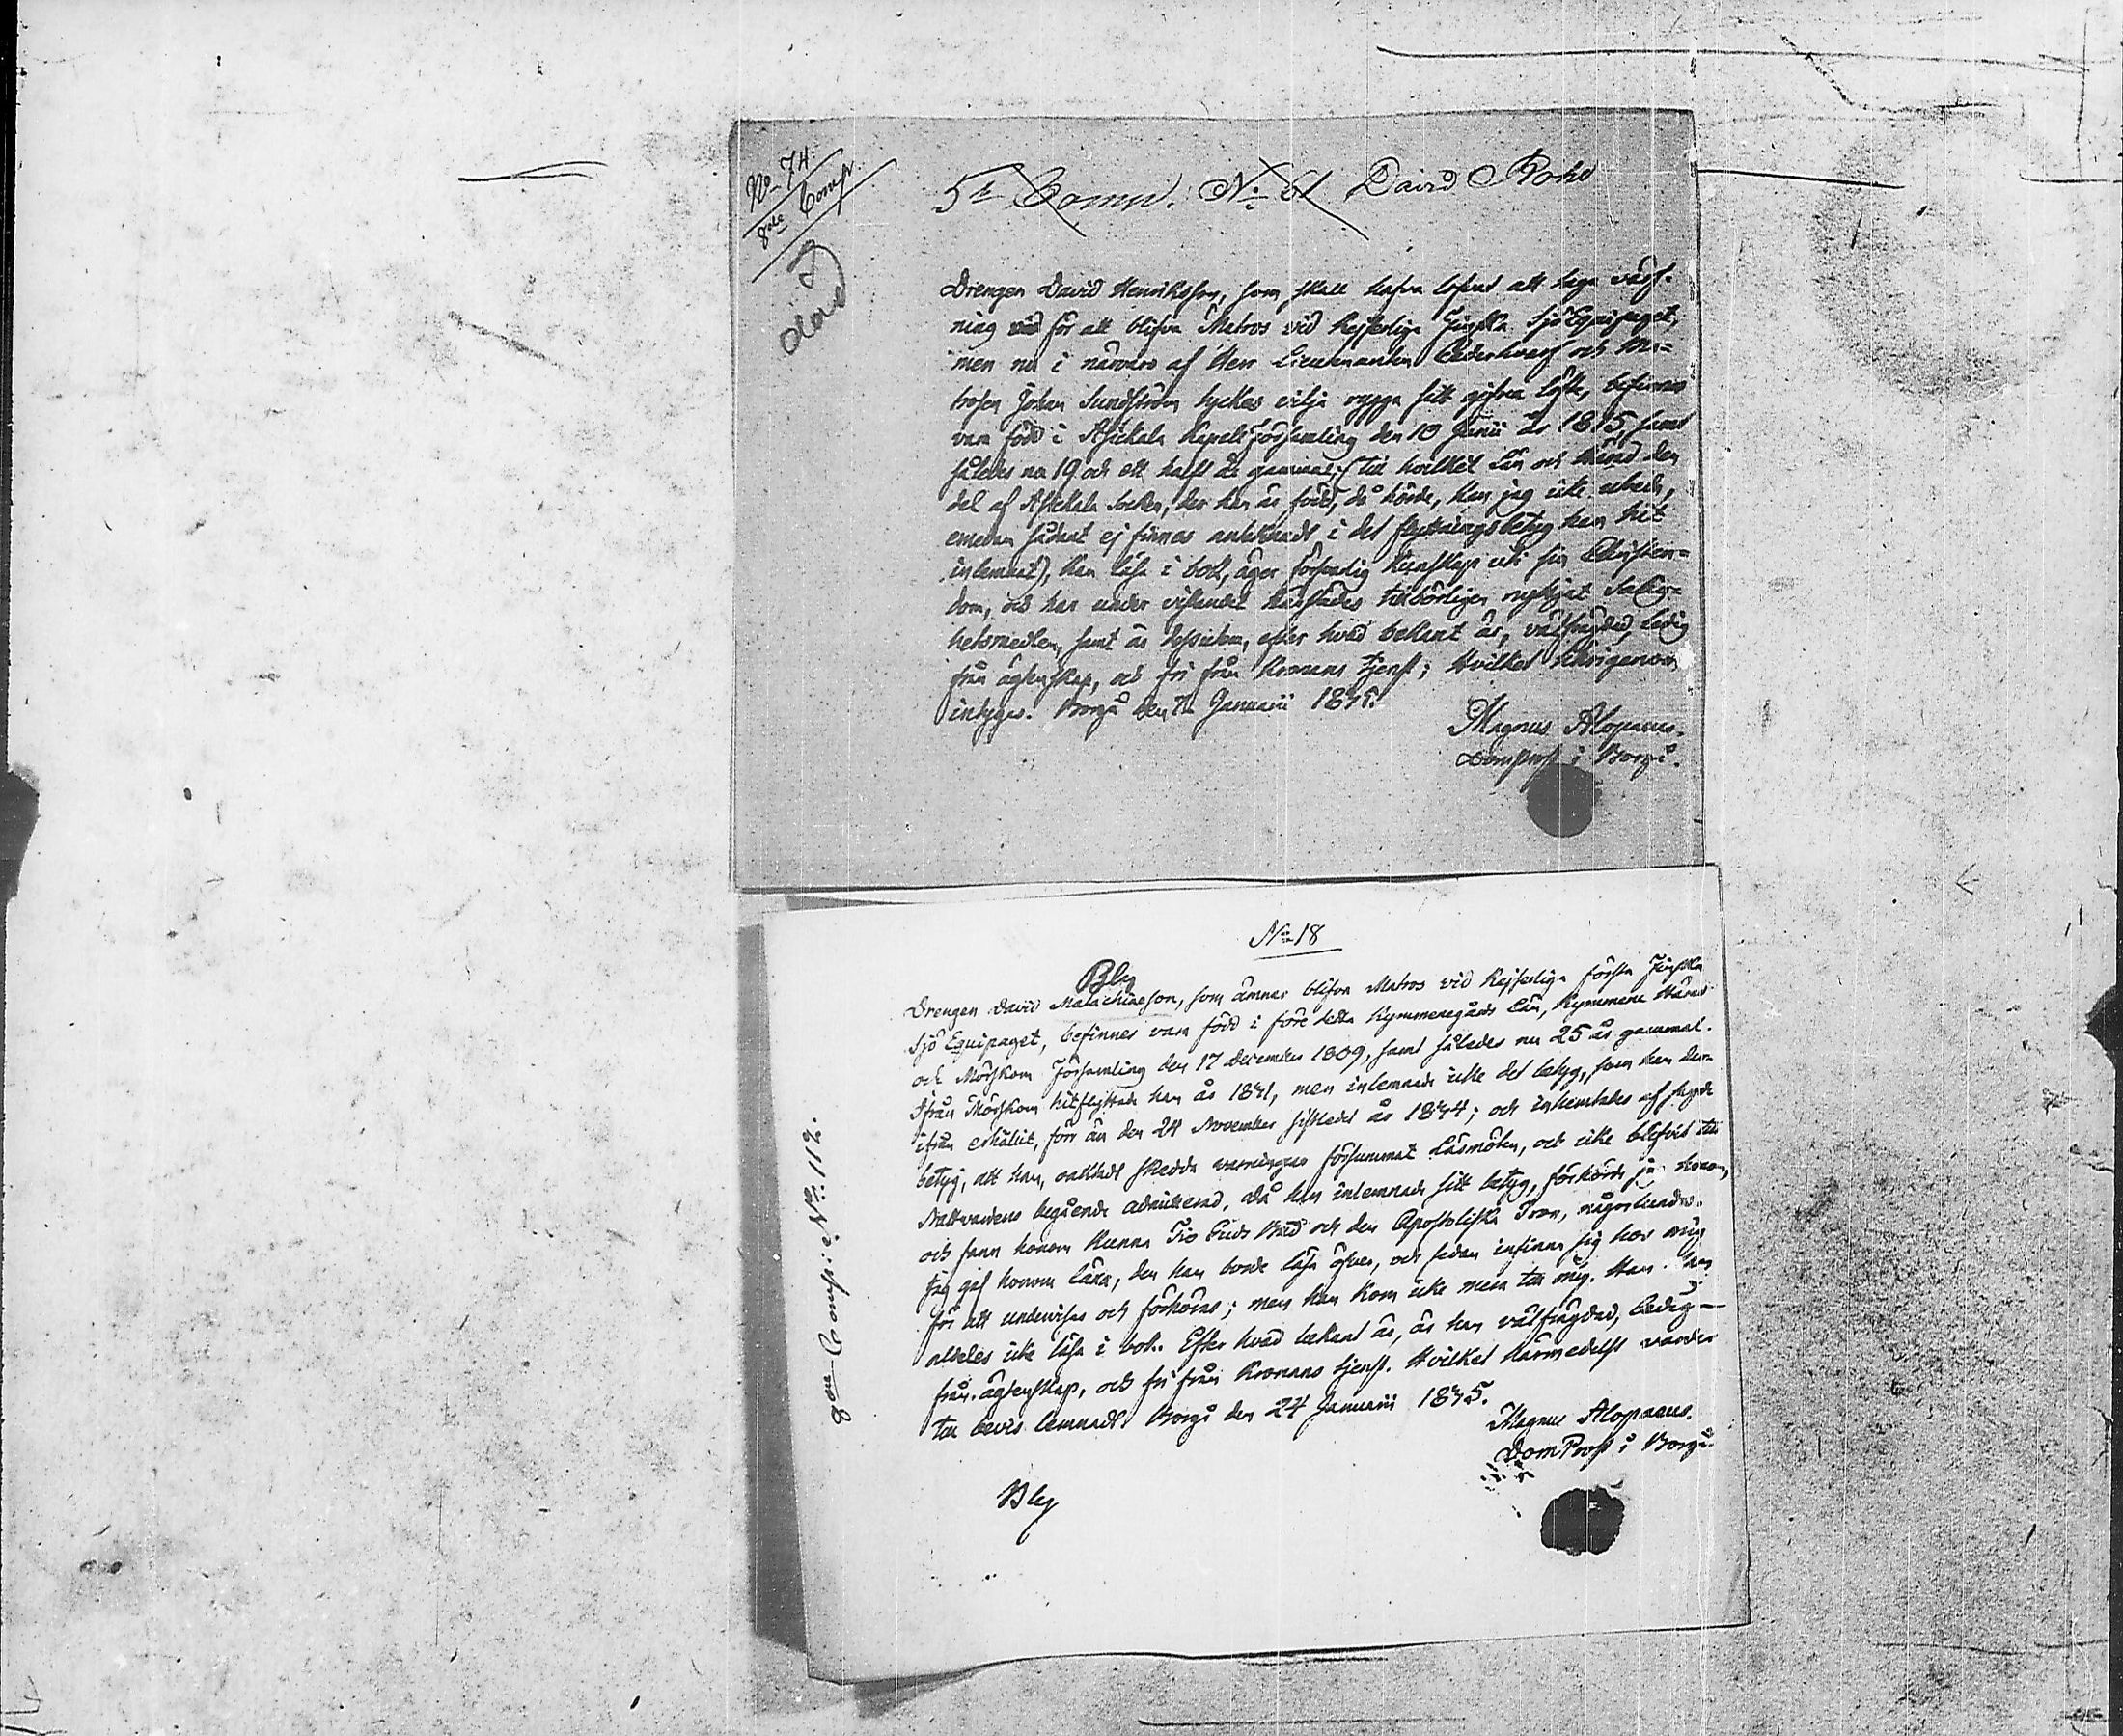 No 74.
8de Comp.
död
5te Comp. No 61 David Roke
Drengen David Henriksson, som skall hafva lofvat att taga värf-
ning vid för att blifva Matros vid Kejserliga Finska Sjö Equipaget,
men nu i närvaro af Herr Lieutenanten och Ma-
trosen Johan Sundström tyckes vilja rygga sitt gifna löfte, befinnes
vara född i Asickala Kapells Församling den 10 Junii år 1815, samt
således nu 19 och ett halft år gammal; (till hvilket Län och Härad den
del af Asickala Socken, der han är född, då hörde, kan jag icke utreda,
emedan sådant ej finnes antecknadt i det flyttningsbetyg han hit
inlemnat), kan läsa i bok, äger försvarlig kunskap uti sin Christen-
dom, och har under vistandet härstädes tillbörligen nyttjat Salig-
hetsmedlen, samt är dessutom, efter hvad bekant är, välfrägdad, ledig
från ägtenskap, och fri från Kronans tjenst; Hvilket härigenom
intygas. Borgå den 7 Januarii 1835.
Magnus Alopaeus.
Domprost i Borgå.
No 18
Bly
Drengen David Malachiaeson, som ämnar blifva Matros vid Kejserliga första Finska
Sjö Equipaget, befinnes vara född i före detta Kymmenegårds Län, Kymmene Härad
och Mörskom Församling den 17 December 1809, samt således nu 25 år gammal.
Ifrån Mörskom hitflyttade han år 1831, men inlemnade icke det betyg, som han der-
ifrån erhållit, förr än den 24 November sistledet år 1834; och inhemtades af sagde
betyg, att han, oaktadt skedda varningar försummat Läsmöten, och icke blifvit till
Nattvardens begående admitterad. Då han inlemnade sitt betyg, förhörde jag honom,
och fann honom kunna Tio Guds Bud och den Apostoliska Tron, någorlunda.
Jag gaf honom Läxa, den han borde läsa öfver, och sedan infinna sig hos mig
för att undervisas och förhöras; men han kom icke mera till mig. Han kan
aldeles icke läsa i bok. Efter hvad bekant är, är han välfrägdad, ledig
från ägtenskap, och fri från Kronans tjenst. Hvilket härmedelst varder
till bevis lemnadt. Borgå den 24 Januarii 1835.
Magnus Alopaeus.
DomProst i Borgå.
Bly
8de Compie No. 112.